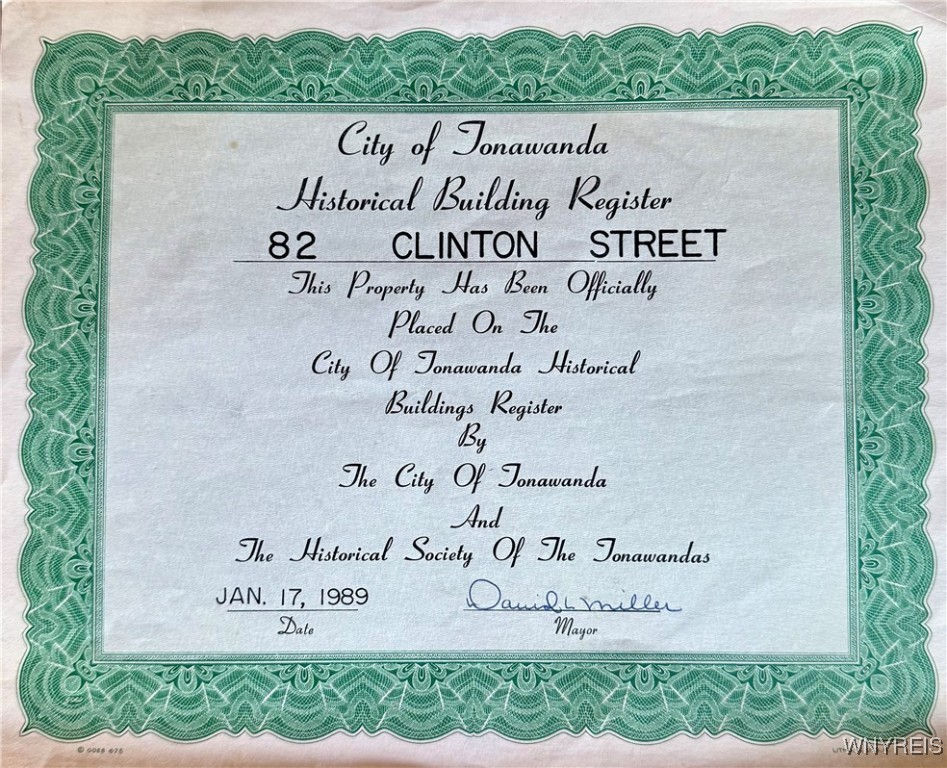 City of Tonawanda
Historical Building Register
82 CLINTON STREET
This Property Has Been Officially
Placed On The
City Of Tonawanda Historical
Buildings Register
By
The City Of Tonawanda
And
The Historical Society Of The Tonawandas
JAN. 17, 1989 David L Miller
Date Mayor
© GOES 675
WNYREIS